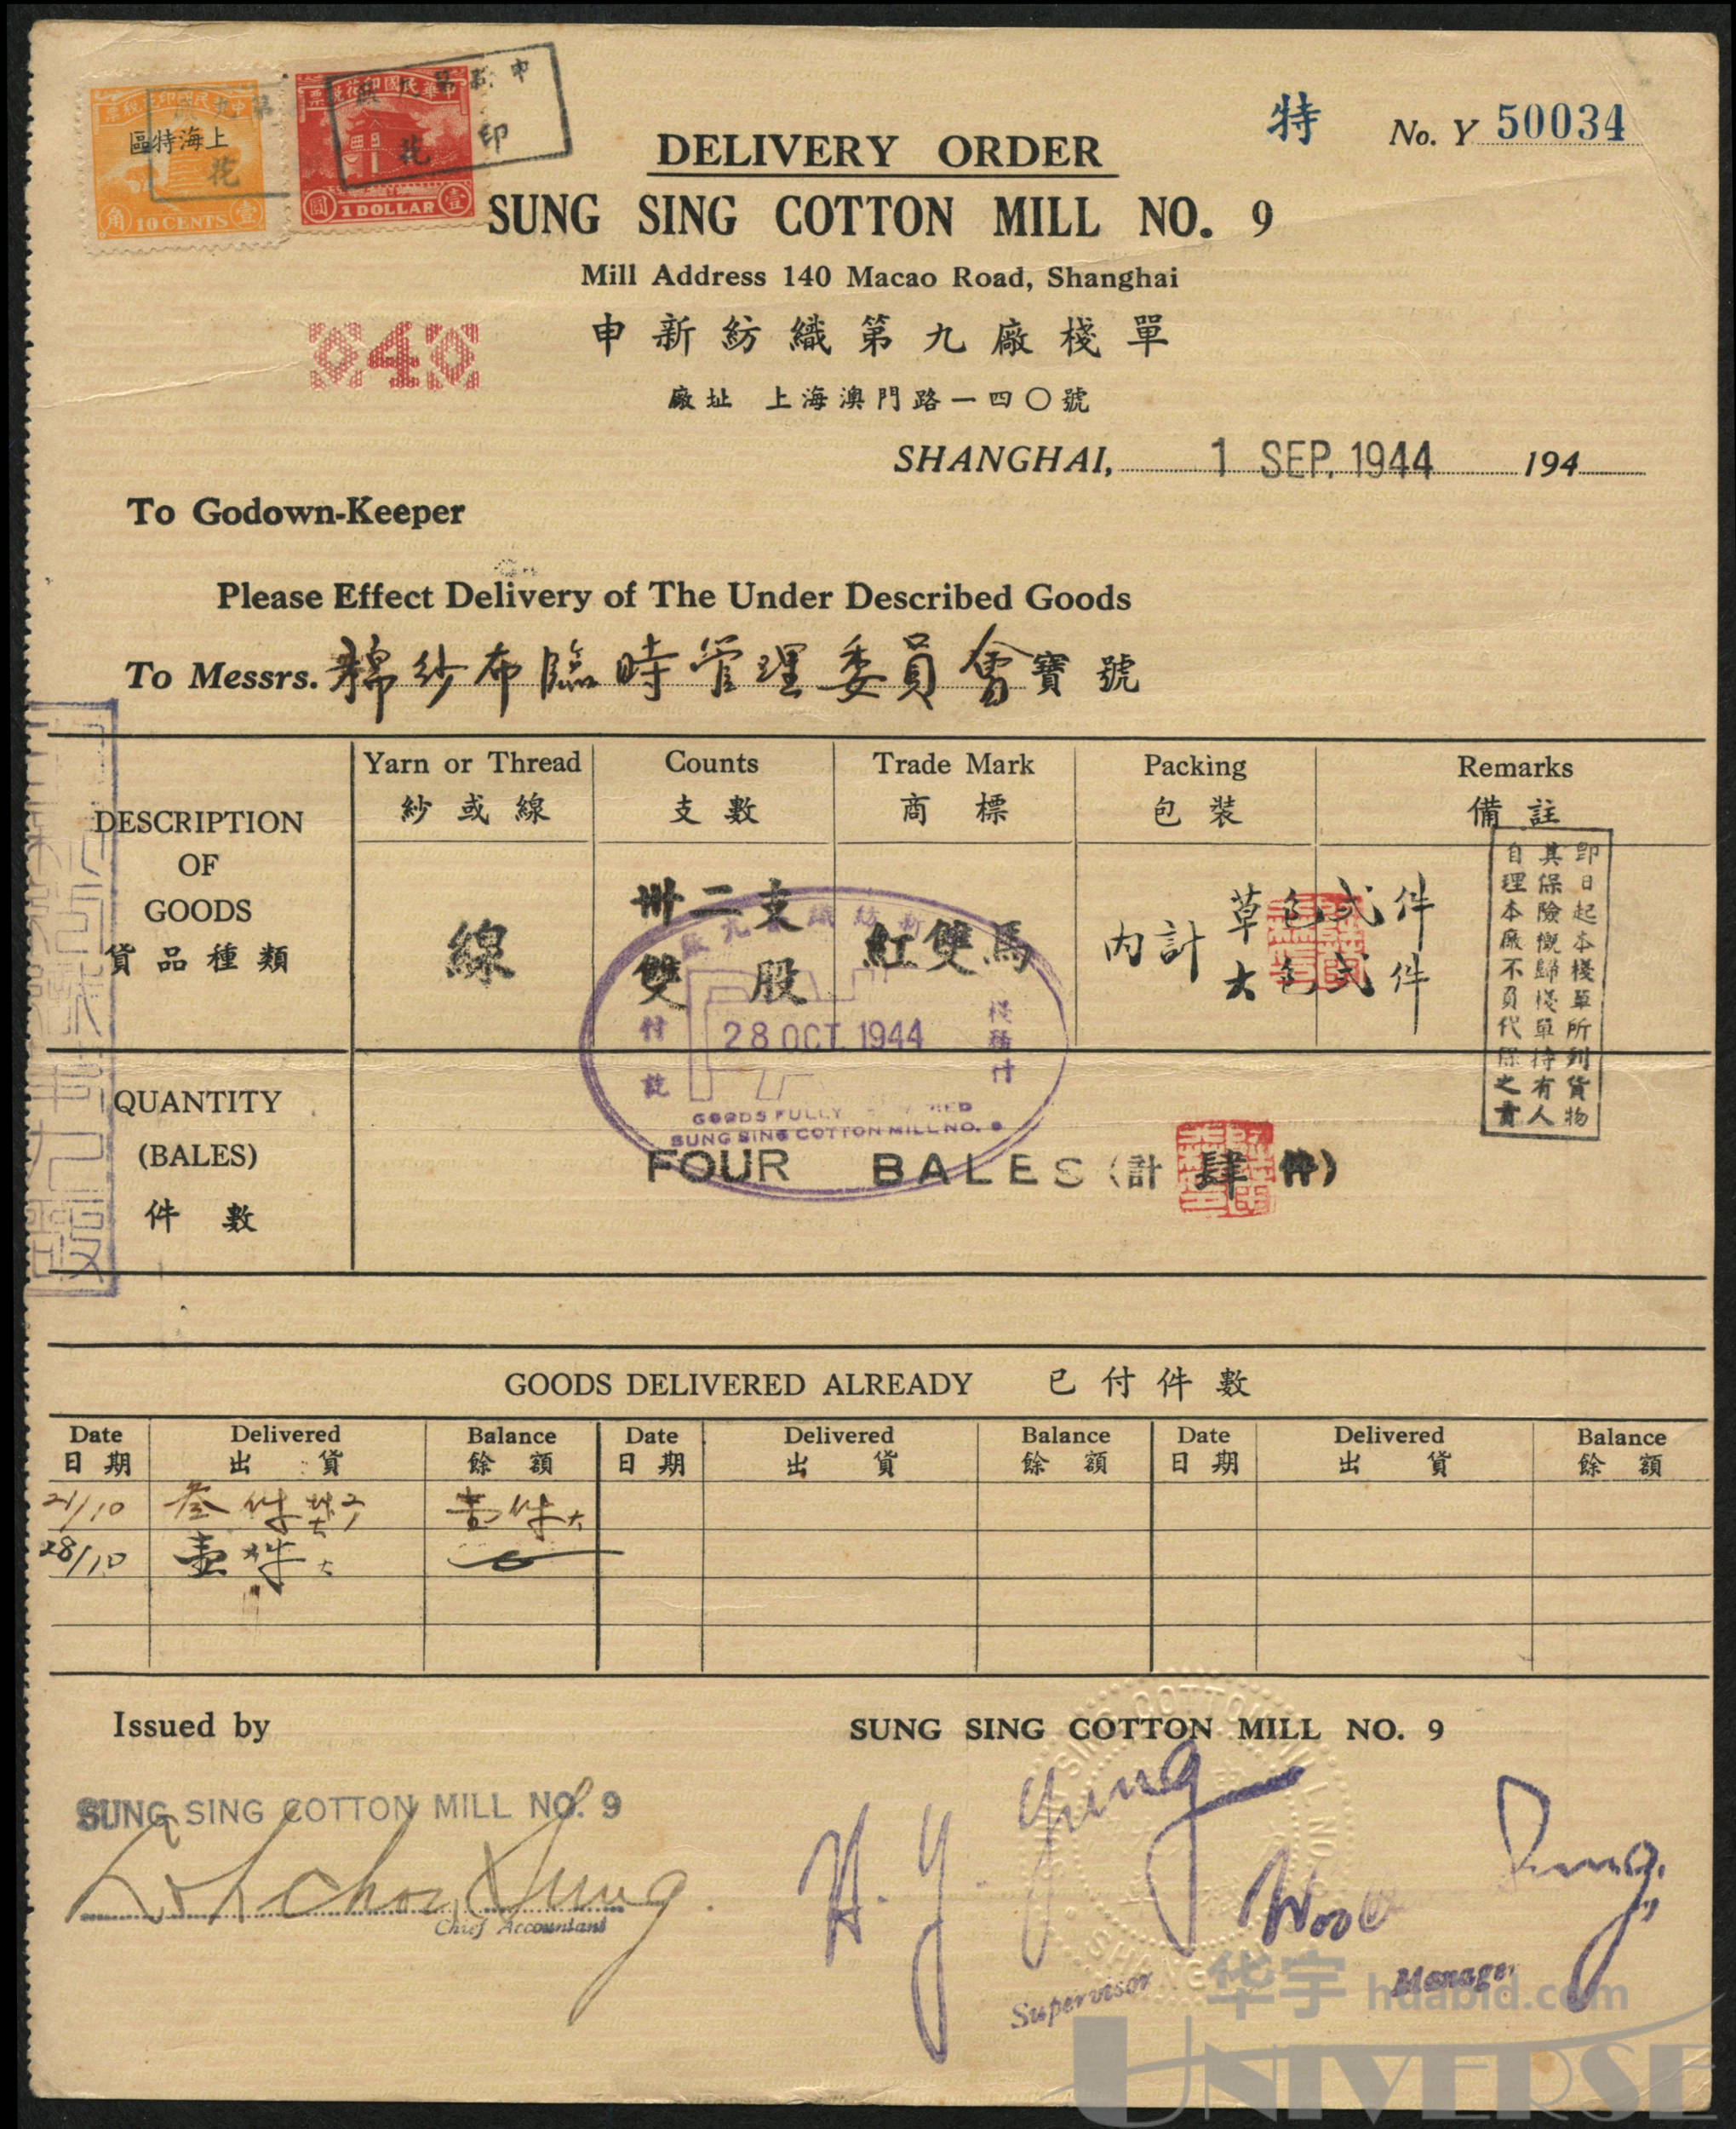 上海特區
10 CENTS
1 DOLLAR
特 No. Y 50034
DELIVERY ORDER
SUNG SING COTTON MILL NO. 9
Mill Address 140 Macao Road, Shanghai
申新紡織第九廠棧單
4
廠址 上海澳門路一四〇號
SHANGHAI, 1 SEP. 1944 194
To Godown-Keeper
Please Effect Delivery of The Under Described Goods
To Messrs. 棉紗布臨時管理委員會寶號
DESCRIPTION
OF
GOODS
貨品種類
Yarn or Thread
紗或線
Counts
支數
Trade Mark
商標
Packing
包裝
Remarks
備註
線
卅二支
雙股
紅雙馬
內計
草包弍件
大包弍件
即日起本棧單所列貨物
其保險概歸棧單持有人
自理本廠不負代保之責
28 OCT. 1944
GOODS FULLY
SUNG SING COTTON MILL NO. 9
QUANTITY
(BALES)
件數
FOUR BALES (計肆件)
GOODS DELIVERED ALREADY 已付件數
Date Delivered Balance Date Delivered Balance Date Delivered Balance
日期 出貨 餘額 日期 出貨 餘額 日期 出貨 餘額
21/10 叁件 壹件大
28/10 壹件大
Issued by
SUNG SING COTTON MILL NO. 9
SUNG SING COTTON MILL NO. 9
Chief Accountant
H. Y. Yung
Supervisor
Manager
华宇 hdabid.com
UNIVERSE